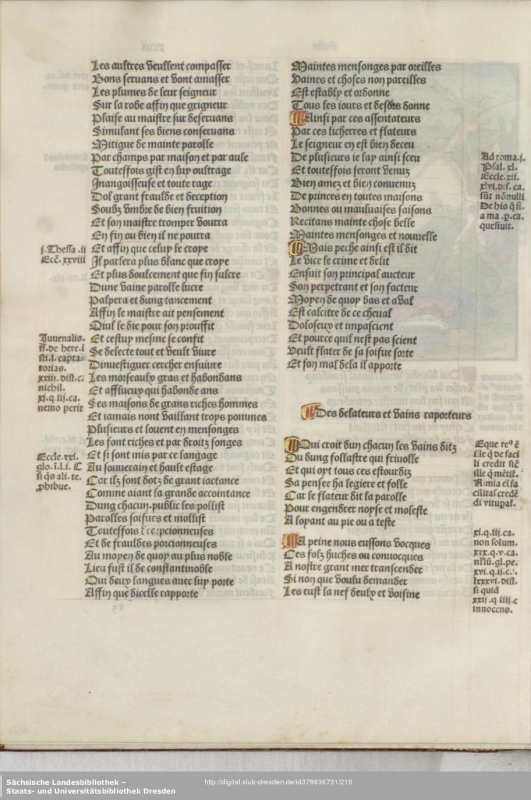 Les aultres veullent compasser
Bons seruans et vont amasser
Les plumes de leur seigneur
Sur la robe affin que grigneur
Plaise au maistre sur desseruans
Simulant ses biens conseruans
Mitigue de mainte parolle
Par champs par maison et par aule
Touteffois gist en luy oultrage
Inangoisseuse et toute rage
Dol grant fraulde et deception
Soubz vmbre de bien fruition
Et son maistre tromper vourra
En fin ou bien il ne pourra
Et affin que celuy le croye
Il parlera plus blanc que croye
Et plus doulcement que fin sulcre
Dune vaine parolle lucre
Palpera et dung lancement
Affin le maistre ait pensement
Quil le die pour son prouffit
Et cestuy mesme se confit
Se delecte tout et veult viure
Dinuestiguer cercher ensuiure
Les morseaulx gras et habondans
Et afflueux qui habonde ans
Ses maisons de grans riches hommes
Et iamais nont vaillant troys pommes
Plusieurs et louent en mensonges
Les font riches et par droitz songes
Et si sont mis par ce langage
Au souuerain et hault estage
Car ilz sont dotz de grant iactance
Comme aiant la grande accointance
Dung chacun public les pollist
Parolles soisues et mollist
Touteffois
Et de frauldes porcionneuses
Au moyen de quoy au plus noble
Lieu fust il de constantinoble
Qui deux langues auec luy porte
Affin que dicelle rapporte
j. Thessa .ij
Ecc. xxviii
Iuuenalis.
ff. de here. i
sti. l. capta-
torias.
xxiii. dist. c.
nichil.
xi. q. iii. ca.
nemo perit
Eccle. xxi.
glo. i. l. i. C
si qs ali. te.
phibue.
Maintes mensonges par oreilles
Vaines et choses non pareilles
Est estably et ordonne
Tous les iours et desdes donne
Ainsi par ces assentateurs
Par ces licherres et flateurs
Le seigneur en est bien deceu
De plusieurs ie say ainsi sceu
Et touteffois seront venuz
Bien amez et bien conuenuz
De princes en toutes maisons
Bonnes ou mauluaises saisons
Recitans mainte chose belle
Maintes mensonges et nouuelle
Mais peche ainsi est il dit
Le vice le crime et delit
Ensuit son principal aucteur
Son perpetrant et son facteur
Moyen de quoy bas et aval
Est calcitre de ce cheual
Doloseux et impascient
Et pource quil nest pas scient
Veult flater de sa soisue sorte
Et son mal dela il apporte
Des delateurs et vains raporteurs
Qui croit dun chacun les vains ditz
Ou dung follastre qui friuolle
Et qui opt tous ces estourdiz
Sa pensee ha legiere et folle
Car le flateur dit la parolle
Pour engendrer noyse et moleste
Alopant au pie ou a teste
A peine nous eussons vocques
Ces folz huches ou conuocques
A nostre grant mer transcender
Si non que voulu demander
Les eust la nef deulx et voisine
Ad roma. j.
Psal. xl.
Eccle. xii.
xlvi. dis. ca.
sūt nōnulli
De his q̄ fi.
a ma. p. ca.
quesiuit.
xi. q. iii. ca.
non solum.
xxx. q. v. ca.
xvi. q. ii. c.
lxxxvi. dist.
si quid
xxii. q. iiij. c
innocens.
Sächsische Landesbibliothek –
Staats- und Universitätsbibliothek Dresden
http://digital.slub-dresden.de/id378636731/210